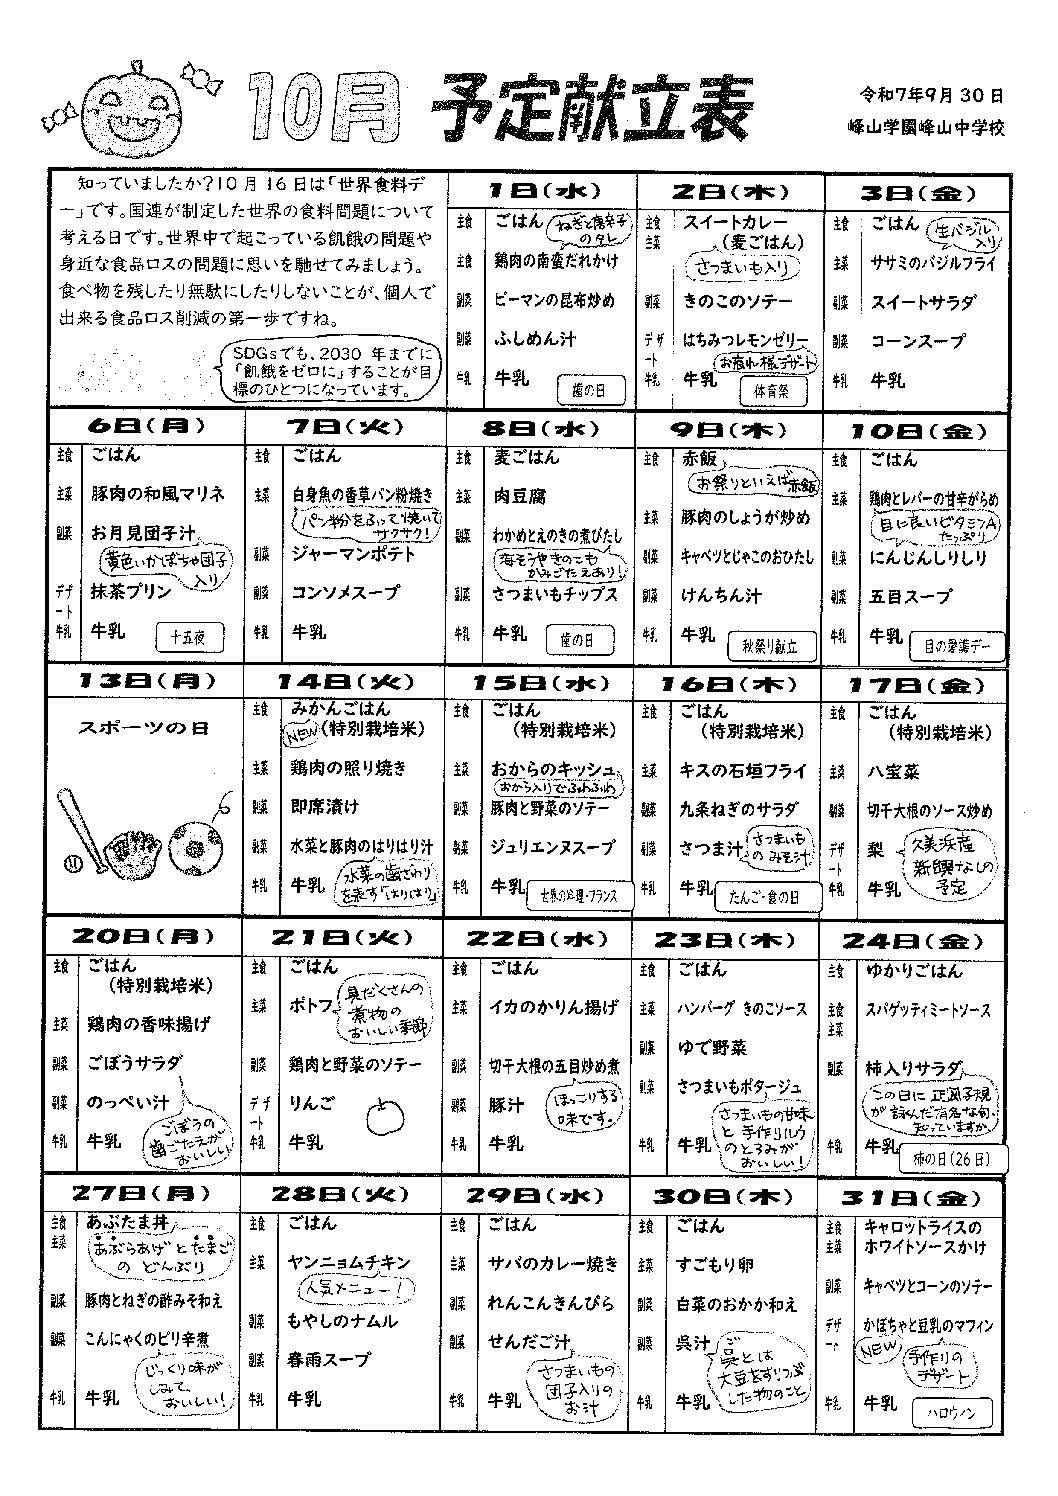 10月 予定献立表
令和7年9月30日
峰山学園峰山中学校
知っていましたか?10月16日は「世界食料デ
ー」です。国連が制定した世界の食料問題について
考える日です。世界中で起こっている飢餓の問題や
身近な食品ロスの問題に思いを馳せてみましょう。
食べ物を残したり無駄にしたりしないことが、個人で
出来る食品ロス削減の第一歩ですね。
SDGsでも、2030年までに
「飢餓をゼロに」することが目
標のひとつになっています。
1日(水)
主食 ごはん
ねぎと唐辛子
のタレ
主食 鶏肉の南蛮だれかけ
副菜 ピーマンの昆布炒め
副菜 ふしめん汁
牛乳 牛乳
歯の日
2日(木)
主食 スイートカレー
主菜 (麦ごはん)
さつまいも入り
副菜 きのこのソテー
デザート はちみつレモンゼリー
お疲れ様デザート
牛乳 牛乳
体育祭
3日(金)
主食 ごはん
生バジル
入り
主菜 ササミのバジルフライ
副菜 スイートサラダ
副菜 コーンスープ
牛乳 牛乳
6日(月)
主食 ごはん
主菜 豚肉の和風マリネ
副菜 お月見団子汁
黄色いかぼちゃ団子
入り
デザート 抹茶プリン
牛乳 牛乳
十五夜
7日(火)
主食 ごはん
主菜 白身魚の香草パン粉焼き
パン粉をふって焼いて
サクサク!
副菜 ジャーマンポテト
副菜 コンソメスープ
牛乳 牛乳
8日(水)
主食 麦ごはん
主菜 肉豆腐
副菜 わかめとえのきの煮びたし
海そうやきのこも
かみごたえあり!
副菜 さつまいもチップス
牛乳 牛乳
歯の日
9日(木)
主食 赤飯
お祭りといえば赤飯
主菜 豚肉のしょうが炒め
副菜 キャベツとじゃこのおひたし
副菜 けんちん汁
牛乳 牛乳
秋祭り献立
10日(金)
主食 ごはん
主菜 鶏肉とレバーの甘辛がらめ
目に良いビタミンA
たっぷり
副菜 にんじんしりしり
副菜 五目スープ
牛乳 牛乳
目の愛護デー
13日(月)
スポーツの日
14日(火)
主食 みかんごはん
NEW (特別栽培米)
主菜 鶏肉の照り焼き
副菜 即席漬け
副菜 水菜と豚肉のはりはり汁
牛乳 牛乳
水菜の歯ざわり
を表す「はりはり」
15日(水)
主食 ごはん
(特別栽培米)
主菜 おからのキッシュ
おから入りでふわふわ
副菜 豚肉と野菜のソテー
副菜 ジュリエンヌスープ
牛乳 牛乳
世界の料理・フランス
16日(木)
主食 ごはん
(特別栽培米)
主菜 キスの石垣フライ
副菜 九条ねぎのサラダ
副菜 さつま汁
さつまいも
のみそ汁
牛乳 牛乳
たんご・食の日
17日(金)
主食 ごはん
(特別栽培米)
主菜 八宝菜
副菜 切干大根のソース炒め
デザート 梨
久美浜産
新興なしの
予定
牛乳 牛乳
20日(月)
主食 ごはん
(特別栽培米)
主菜 鶏肉の香味揚げ
副菜 ごぼうサラダ
副菜 のっぺい汁
牛乳 牛乳
ごぼうの
歯ごたえが
おいしい
21日(火)
主食 ごはん
主菜 ポトフ
具だくさんの
煮物の
おいしい季節
副菜 鶏肉と野菜のソテー
デザート りんご
牛乳 牛乳
22日(水)
主食 ごはん
主菜 イカのかりん揚げ
副菜 切干大根の五目炒め煮
副菜 豚汁
ほっこりする
味です。
牛乳 牛乳
23日(木)
主食 ごはん
主菜 ハンバーグ きのこソース
副菜 ゆで野菜
副菜 さつまいもポタージュ
さつまいもの甘味
と手作りルウ
のとろみが
おいしい!
牛乳 牛乳
24日(金)
主食 ゆかりごはん
主食 スパゲッティミートソース
主菜
副菜 柿入りサラダ
この日に正岡子規
が詠んだ有名な句、
知っていますか。
牛乳 牛乳
柿の日(26日)
27日(月)
主食 あぶたま丼
主菜
あぶらあげとたまご
のどんぶり
副菜 豚肉とねぎの酢みそ和え
副菜 こんにゃくのピリ辛煮
じっくり味が
しみて
おいしい!
牛乳 牛乳
28日(火)
主食 ごはん
主菜 ヤンニョムチキン
人気メニュー!
副菜 もやしのナムル
副菜 春雨スープ
牛乳 牛乳
29日(水)
主食 ごはん
主菜 サバのカレー焼き
副菜 れんこんきんぴら
副菜 せんだご汁
さつまいもの
団子入りの
お汁
牛乳 牛乳
30日(木)
主食 ごはん
主菜 すごもり卵
副菜 白菜のおかか和え
副菜 呉汁
ご
呉とは
大豆をすりつぶ
した物のこと
牛乳 牛乳
31日(金)
主食 キャロットライスの
主菜 ホワイトソースかけ
副菜 キャベツとコーンのソテー
デザート かぼちゃと豆乳のマフィン
NEW
手作りの
デザート
牛乳 牛乳
ハロウィン